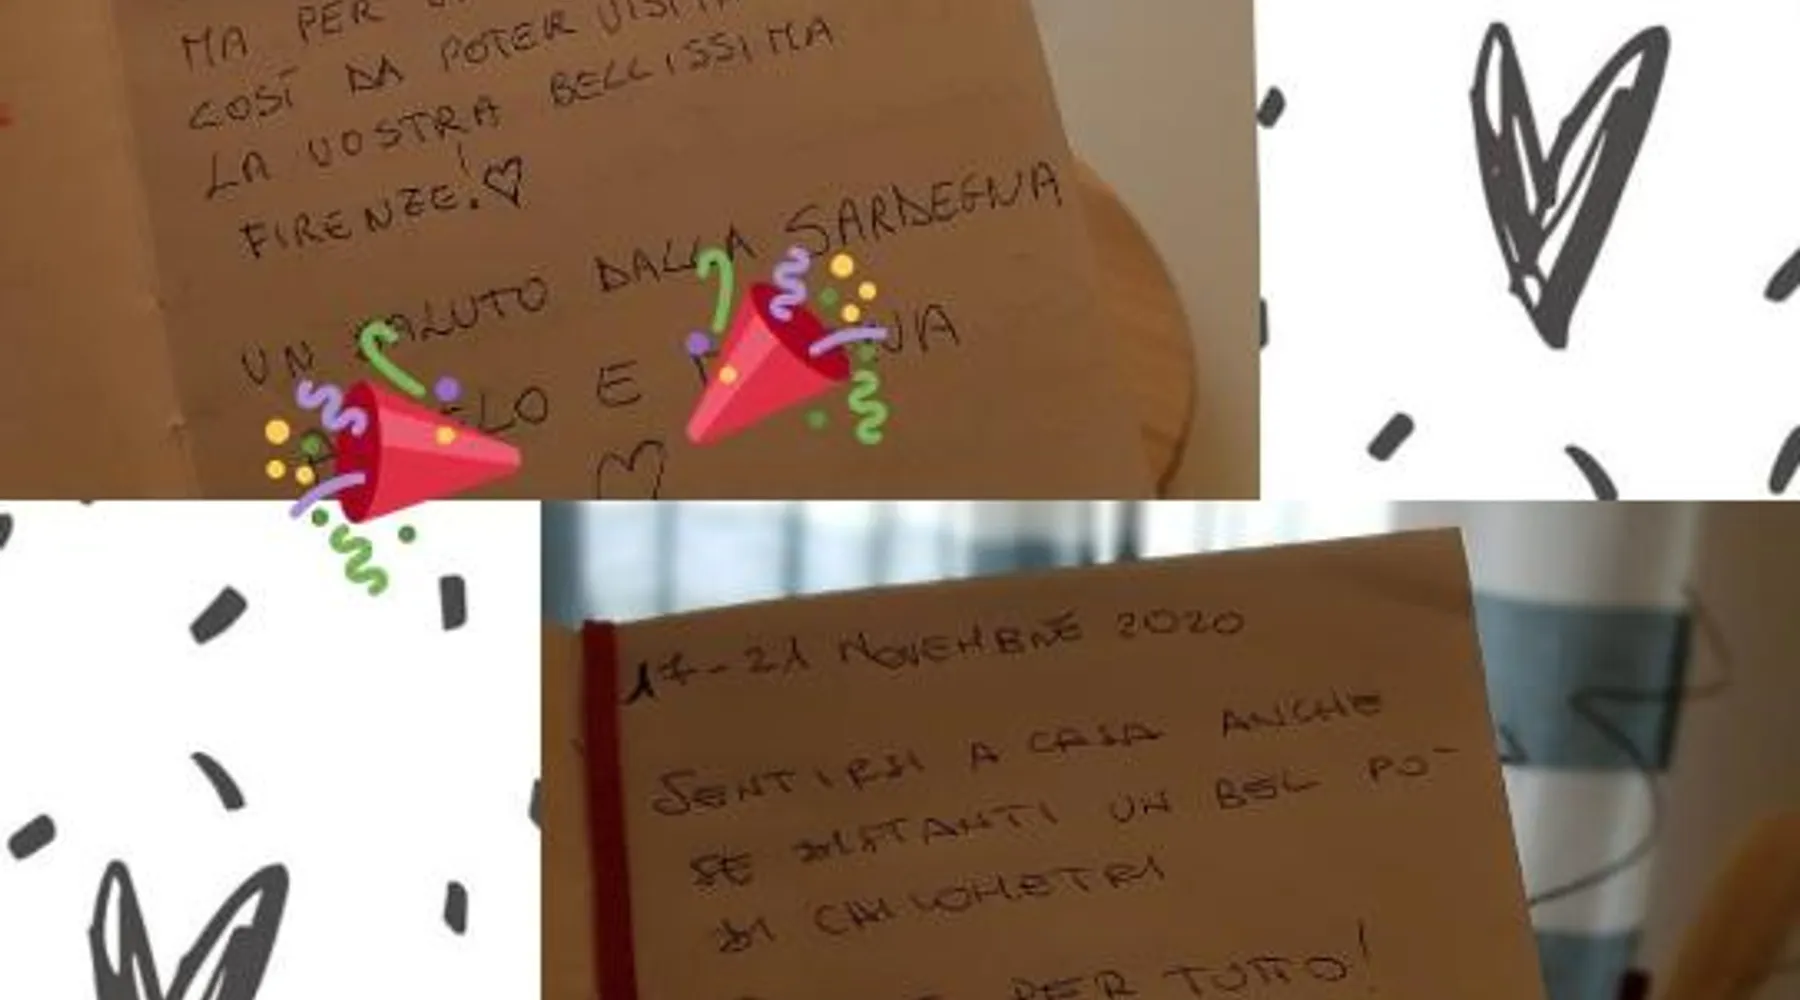 MA PER
COSÌ DA POTER
LA VOSTRA BELLISSIMA
FIRENZE!♡
UN SALUTO DALLA SARDEGNA
E
♡
17-21 NOVEMBRE 2020
SENTIRSI A CASA ANCHE
SE DISTANTI UN BEL PO'
DI CHILOMETRI
PER TUTTO!